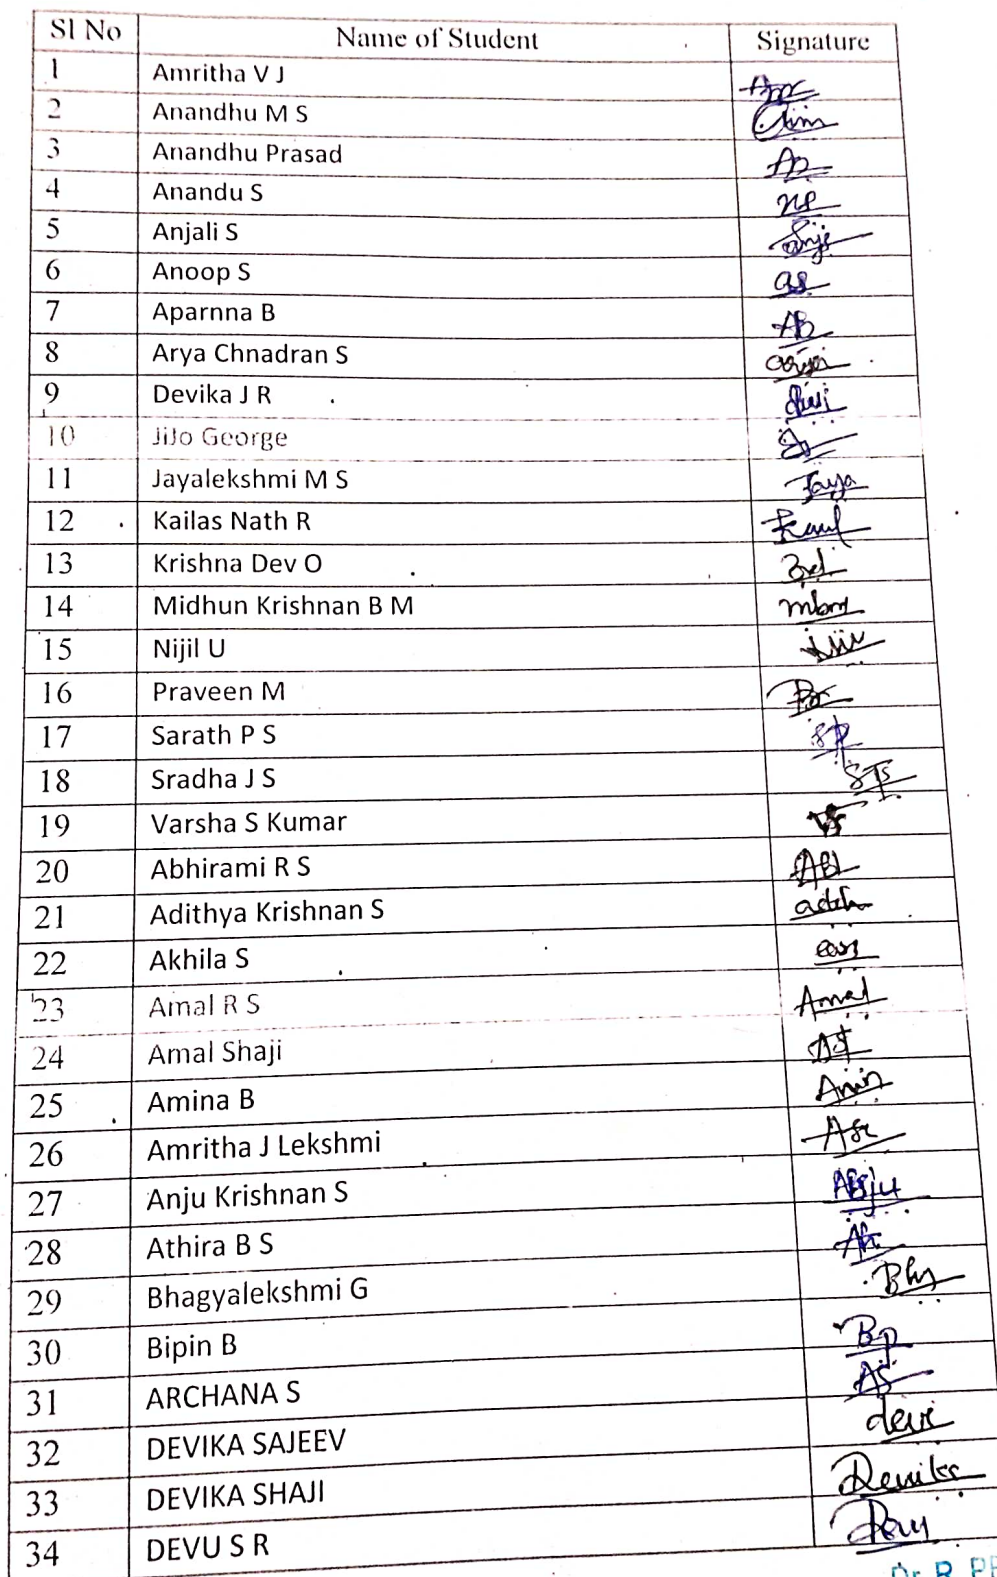 Sl No Name of Student Signature
1 Amritha V J
2 Anandhu M S
3 Anandhu Prasad AP
4 Anandu S
5 Anjali S
6 Anoop S as
7 Aparnna B AB
8 Arya Chnadran S
9 Devika J R
10 JiJo George
11 Jayalekshmi M S Jaya
12 Kailas Nath R
13 Krishna Dev O
14 Midhun Krishnan B M mbm
15 Nijil U
16 Praveen M
17 Sarath P S SP
18 Sradha J S SJS
19 Varsha S Kumar VS
20 Abhirami R S
21 Adithya Krishnan S
22 Akhila S
23 Amal R S Amal
24 Amal Shaji AS
25 Amina B
26 Amritha J Lekshmi
27 Anju Krishnan S Anju
28 Athira B S
29 Bhagyalekshmi G
30 Bipin B Bp
31 ARCHANA S AS
32 DEVIKA SAJEEV devi
33 DEVIKA SHAJI Devika
34 DEVU S R
Dr. R.